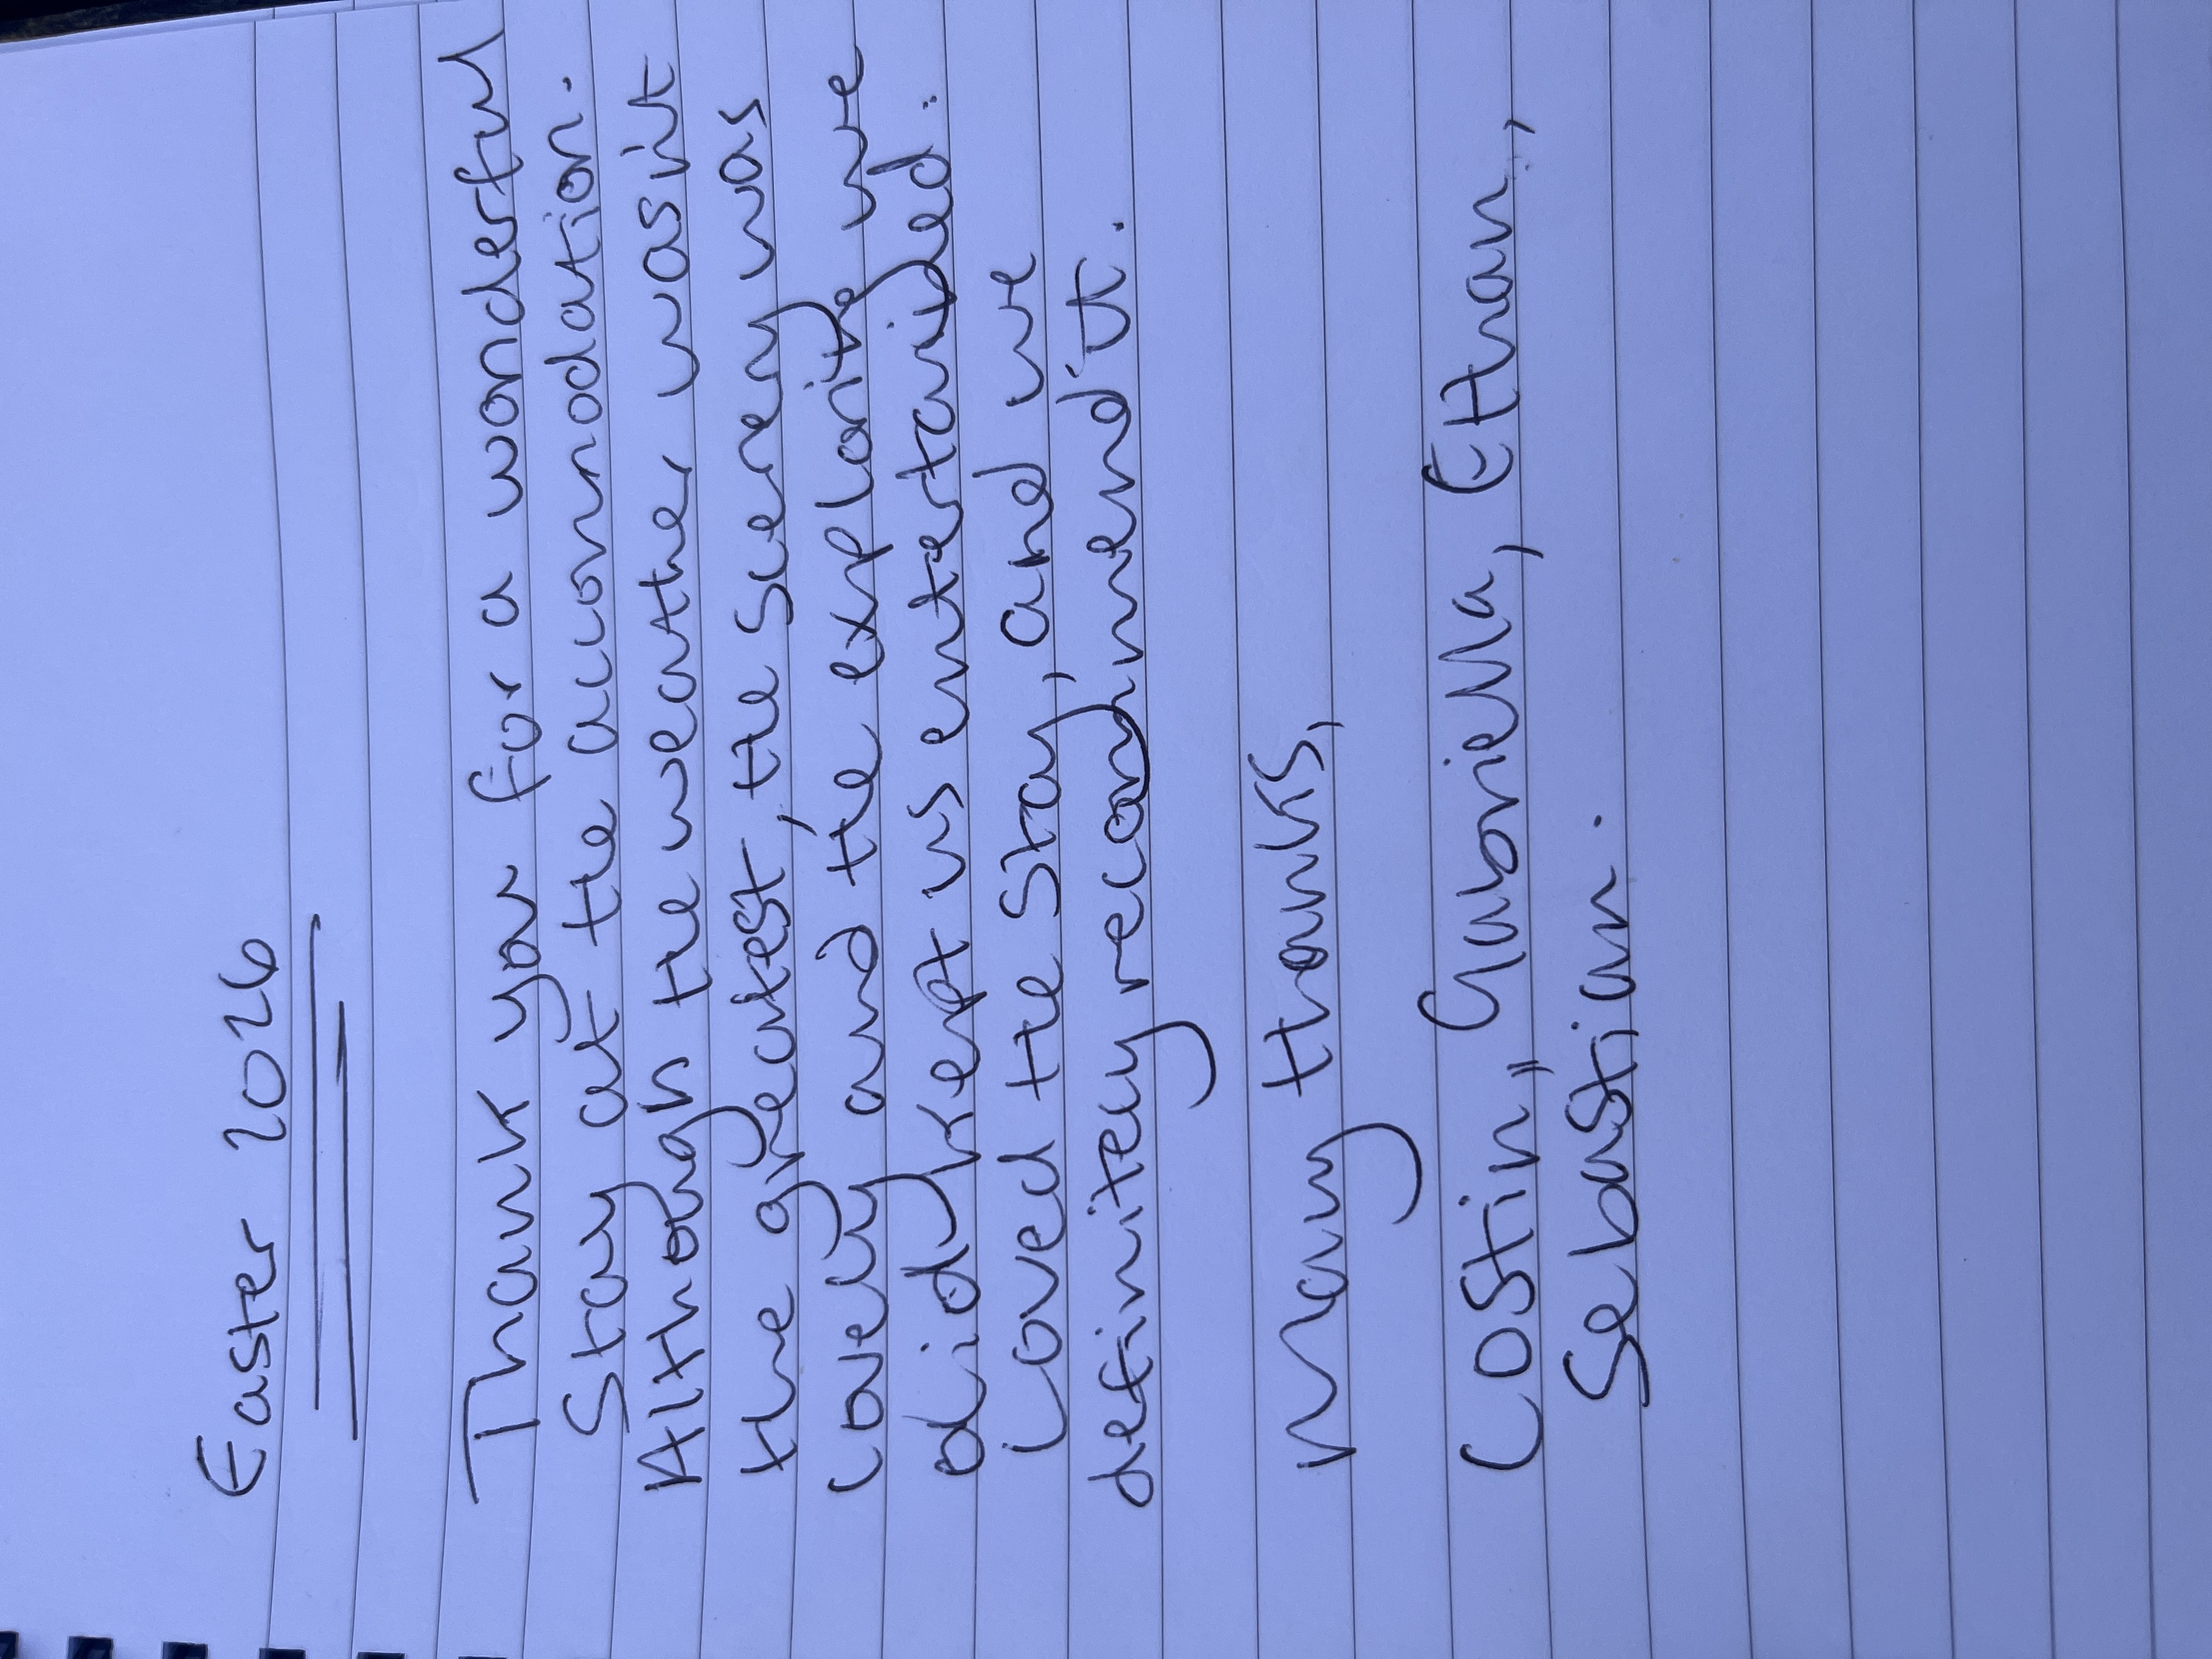 Easter 2026
Thank you for a wonderful
Stay at the accomodation.
Although the weather wasn't
the greatest, the scenery was
lovely and the exploring we
did kept us entertained.
Loved the stay, and we
definitely recommend it.
Many thanks,
Costin, Gabriella, Ethan,
Sebastian.